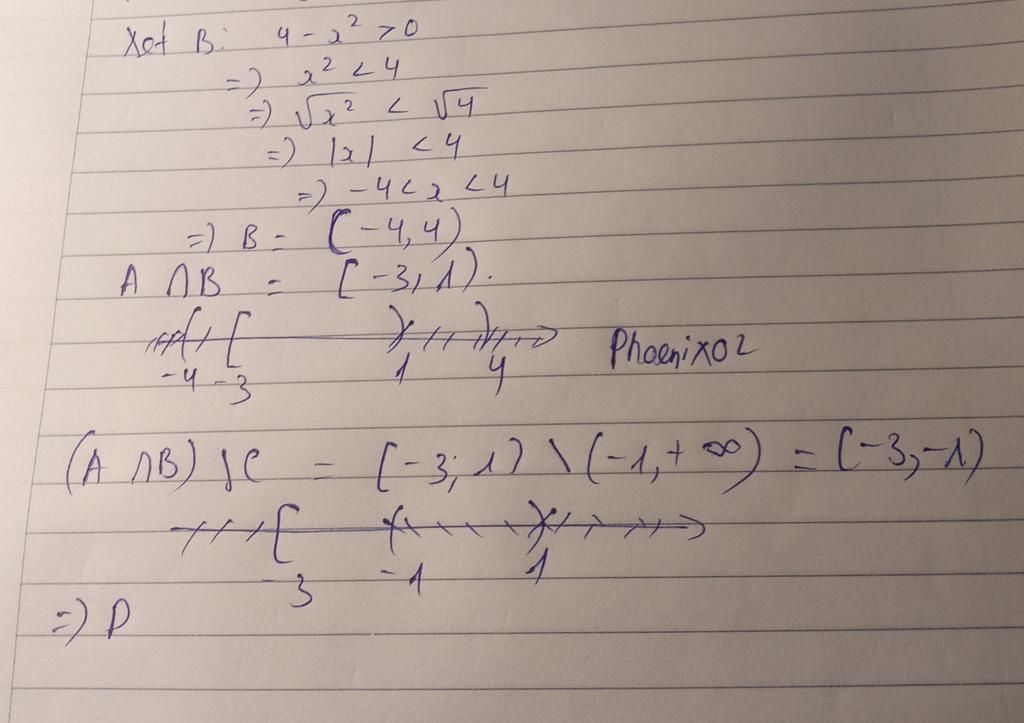 Xét B: 4 - x² > 0
=) x² < 4
=) √x² < √4
=) |x| < 4
=) -4 < x < 4
=) B = (-4, 4)
A ∩ B = [-3, 1).
-4 -3 1 4
Phoenix02
(A ∩ B) \ C = [-3; 1) \ (-1, +∞) = [-3, -1)
-3 -1 1
=) D